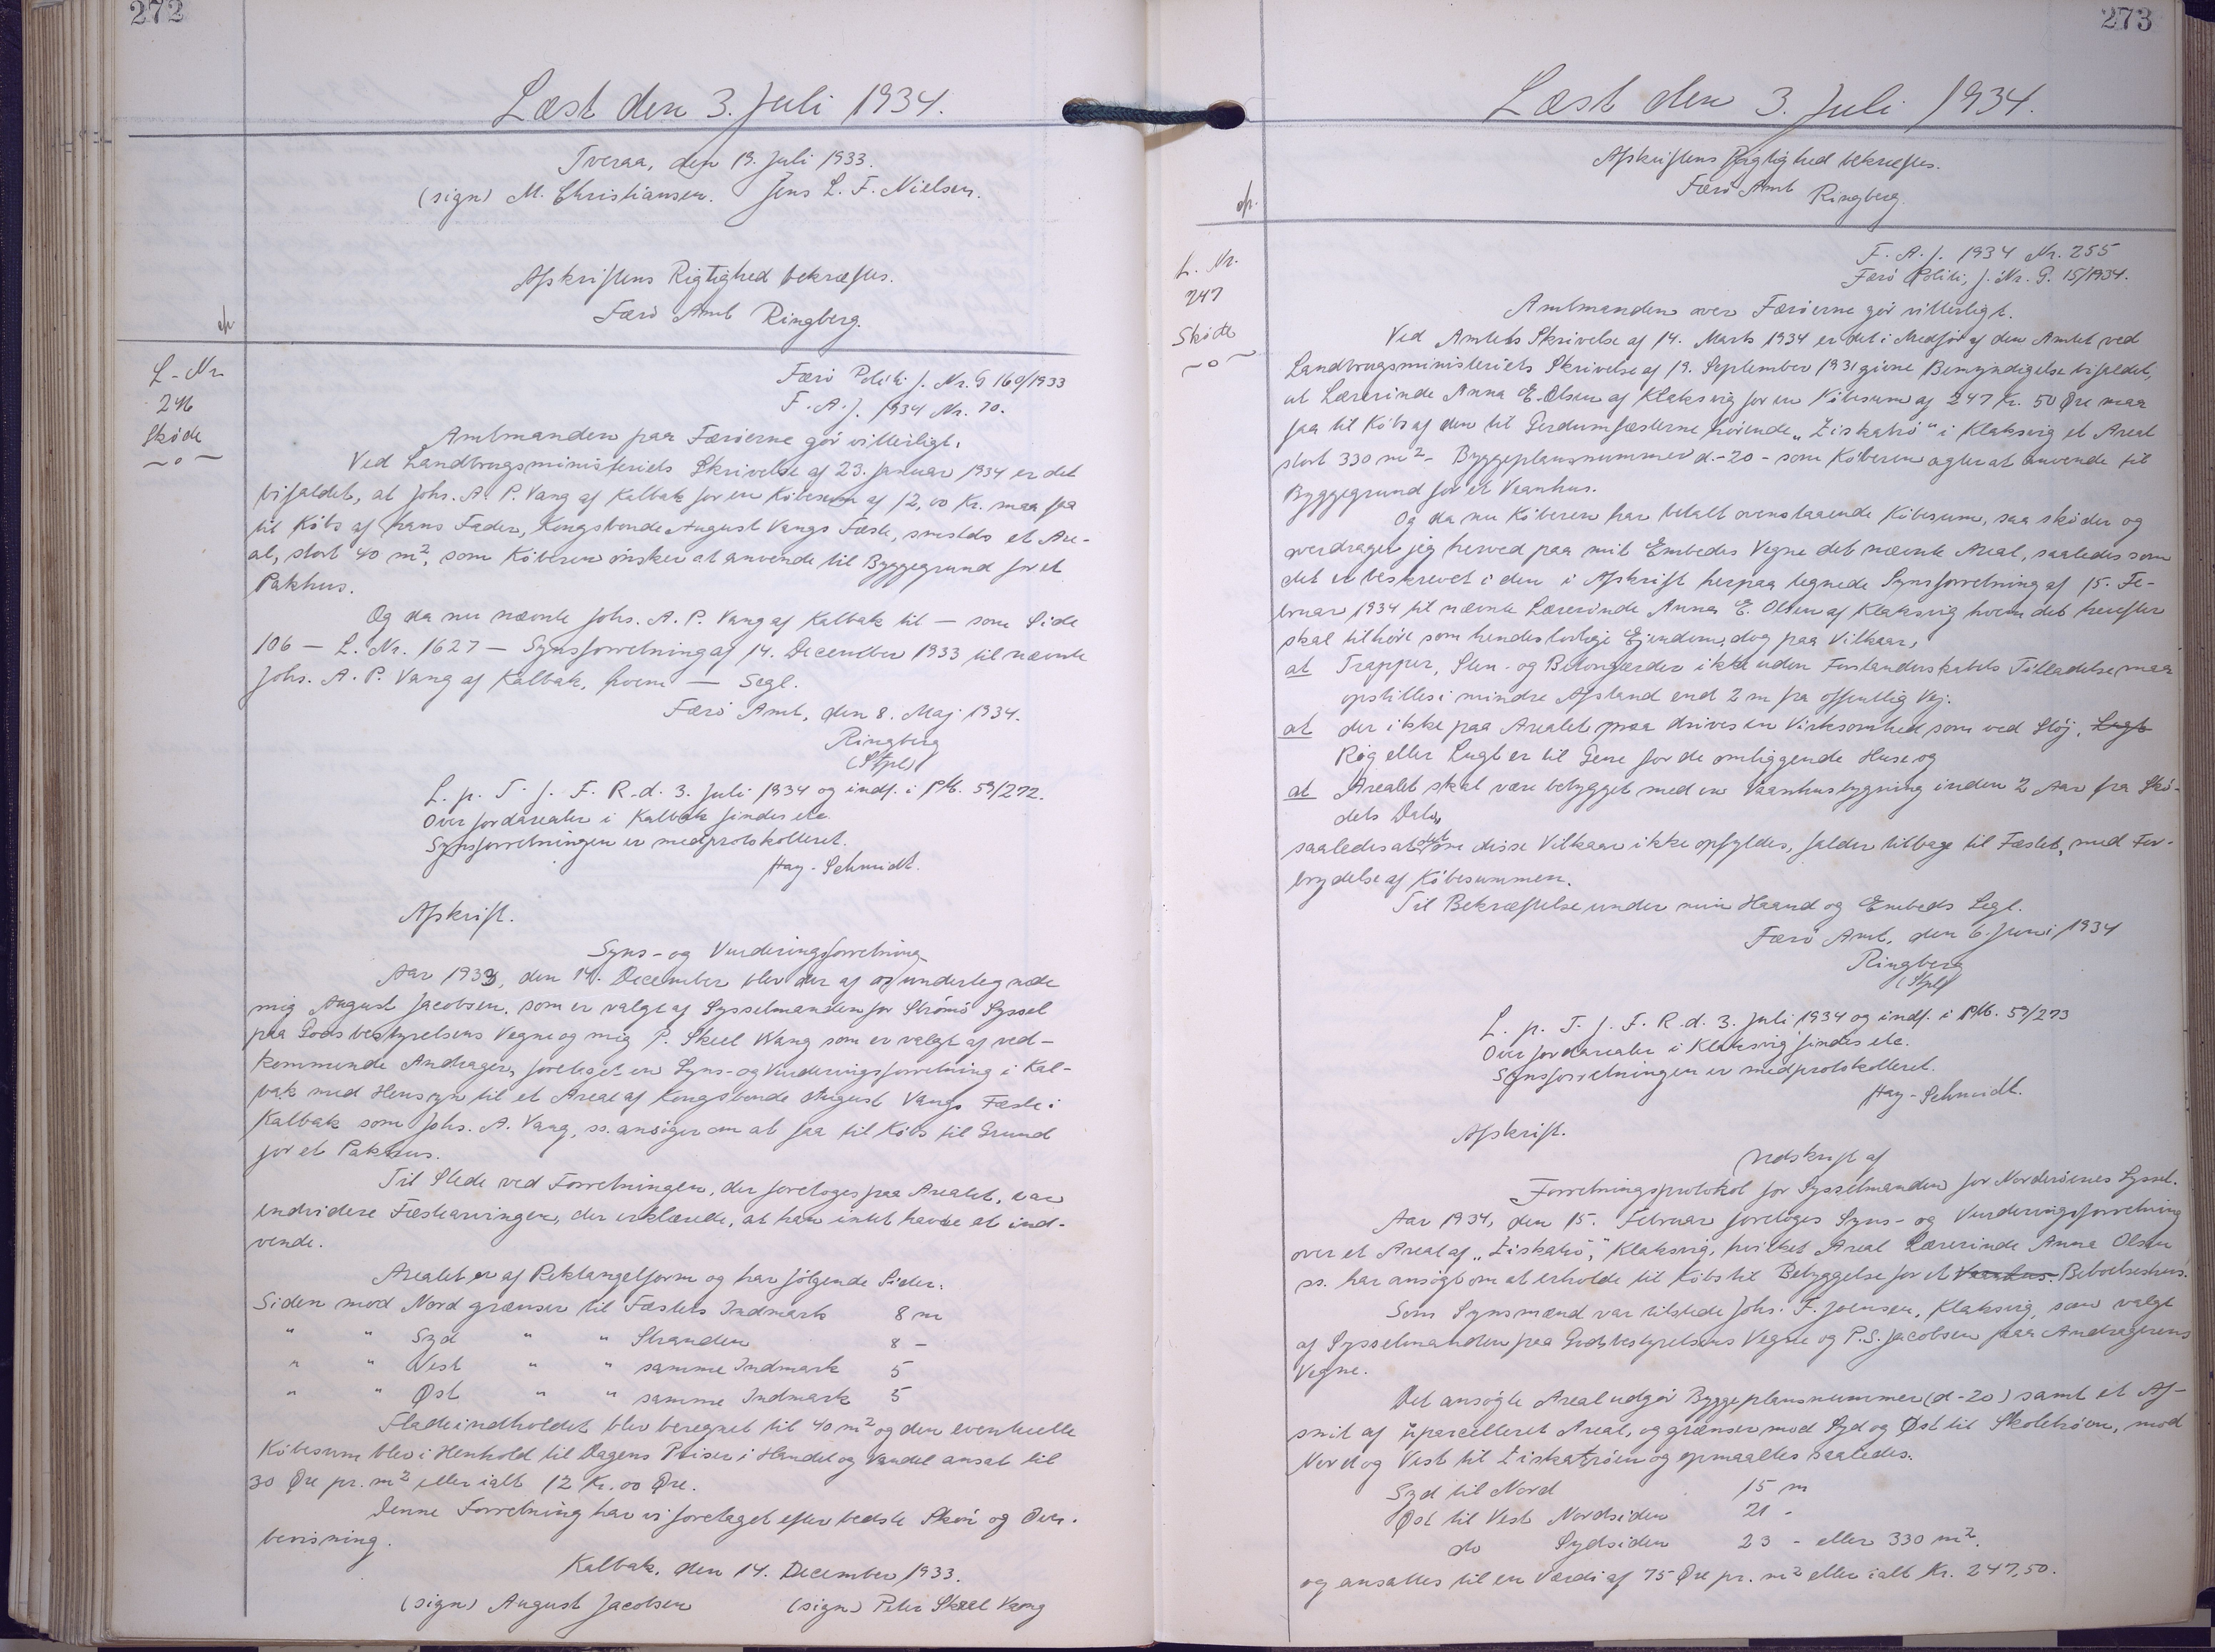 272
Læst den 3. Juli 1934.
Tveraa, den 19. Juli 1933.
(sign) M. Christiansen. Jens L. F. Nielsen.
Afskriftens Rigtighed bekræftes.
Færö Amt Ringberg.
L-Nr
246
Sköde
Færö Politi J. Nr. G 160/1933
F. A. J. 1934 Nr. 70.
Amtmanden paa Færöerne gör vitterligt.
Ved Landbrugsministeriets Skrivelse af 23. Januar 1934 er det
bifaldet, at Johs. A. P. Vang af Kalbak for en Köbesum af 12,00 Kr. maa faa
til Köbs af hans Fader, Kongsbonde August Vangs Fæste, smstds et Are-
al, stort 40 m², som Köberen önsker at anvende til Byggegrund for et
Pakhus.
Og da nu nævnte Johs. A. P. Vang af Kalbak til — som Side
106 — L. Nr. 1627 — Synsforretning af 14. December 1933 til nævnte
Johs. A. P. Vang af Kalbak, hvem — Segl.
Færö Amt, den 8. Maj 1934.
Ringberg
(Stpl)
L. p. T. f. F. R. d. 3. Juli 1934 og indf. i PM. 59/272.
Over Jordarealer i Kalbak findes etc.
Synsforretningen er medprotokolleret.
Hay-Schmidt.
Afskrift.
Syns- og Vurderingsforretning
Aar 1933, den 14. December blev der af os undertegnede
mig August Jacobsen, som er valgt af Sysselmanden for Strömö Syssel
paa Godsbestyrelsens Vegne og mig P. Skeel Wang som er valgt af ved-
kommende Andrager, foretaget en Syns- og Vurderingsforretning i Kal-
bak med Hensyn til et Areal af Kongsbonde August Vangs Fæste i
Kalbak som Johs. A. Vang, ss. ansöger om at faa til Köbs til Grund
for et Pakhus.
Til Stede ved Forretningen, der foretoges paa Arealet, var
endvidere Fæstearvingen, der erklærede, at han intet havde at ind-
vende.
Arealet er af Rektangelform og har fölgende Sider.
Siden mod Nord grænser til Fæstets Indmark 8 m
" " Syd " " Stranden 8 -
" " Vest " " samme Indmark 5
" " Øst " " samme Indmark 5
Fladeindholdet blev beregnet til 40 m² og den eventuelle
Köbesum blev i Henhold til Dagens Priser i Handel og Vandel ansat til
30 Øre pr. m² eller ialt 12 Kr. 00 Øre.
Denne Forretning har vi foretaget efter bedste Skön og Over-
bevisning.
Kalbak, den 14. December 1933.
(sign) August Jacobsen (sign) Peter Skeel Vang
273
Læst den 3. Juli 1934.
Afskriftens Rigtighed bekræftes.
Færö Amt Ringberg.
L. Nr.
247
Sköde
F. A. J. 1934 Nr. 255
Færö Politi, J. Nr. G. 15/1934.
Amtmanden over Færöerne gör vitterligt.
Ved Amtets Skrivelse af 14. Marts 1934 er det i Medför af den Amtet ved
Landbrugsministeriets Skrivelse af 19. September 1931 givne Bemyndigelse bifaldet,
at Lærerinde Anna E. Olsen af Klaksvig for en Köbesum af 247 Kr. 50 Øre maa
faa til Köbs af den til Gerdumfæsterne hörende „Ziskatrö" i Klaksvig et Areal
stort 330 m² - Byggeplansnummer d.-20 - som Köberen agter at anvende til
Byggegrund for et Vaanhus.
Og da nu Köberen har betalt ovenstaaende Köbesum, saa sköder og
overdrager jeg herved paa mit Embedes Vegne det nævnte Areal, saaledes som
det er beskrevet i den i Afskrift herpaa tegnede Synsforretning af 15. Fe-
bruar 1934 til nævnte Lærerinde Anna E. Olsen af Klaksvig hvem det herefter
skal tilhöre som hendes lovlige Ejendom, dog paa Vilkaar,
at Trapper, Sten- og Betongærder ikke uden Forstanderskabets Tilladelse maa
opstilles i mindre Afstand end 2 m fra offentlig Vej.
at der ikke paa Arealet maa drives en Virksomhed som ved Stöj, Lugt
Røg eller Lugt er til Gene for de omliggende Huse og
at Arealet skal være bebygget med en Vaanhusbygning inden 2 Aar fra Skö-
dets Dato,
saaledes at det om disse Vilkaar ikke opfyldes, falder tilbage til Fæstet, med For-
brydelse af Köbesummen.
Til Bekræftelse under min Haand og Embeds Segl.
Færö Amt, den 6. Juni 1934
Ringberg
(Stpl)
L. p. T. f. F. R. d. 3. Juli 1934 og indf. i PM. 59/273
Over Jordarealer i Klaksvig findes etc.
Synsforretningen er medprotokolleret.
Hay-Schmidt.
Afskrift.
Udskrift af
Forretningsprotokol for Sysselmanden for Norderöernes Syssel.
Aar 1934, den 15. Februar foretoges Syns- og Vurderingsforretning
over et Areal af „Ziskatrö", Klaksvig, hvilket Areal Lærerinde Anna Olsen
ss. har ansögt om at erholde til Köbs til Bebyggelse for et Vaanhus. Beboelseshus.
Som Synsmænd var tilstede Johs. F. Joensen, Klaksvig, som valgt
af Sysselmanden paa Godsbestyrelsens Vegne og P. S. Jacobsen paa Andragerens
Vegne.
Det ansögte Areal udgör Byggeplansnummer (d-20) samt et Af-
snit af uparcelleret Areal, og grænser mod Syd og Øst til Skoletröen, mod
Nord og Vest til Ziskatröen og opmaaltes saaledes.
Syd til Nord 15 m
Øst til Vest Nordsiden 21 -
do Sydsiden 23 - eller 330 m².
og ansattes til en Værdi af 75 Øre pr. m² eller ialt Kr. 247,50.